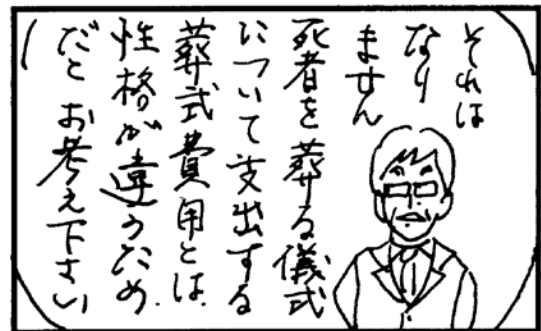 それは
なり
ません
死者を葬る儀式
について支出する
葬式費用とは
性格が違うため
だとお考え下さい